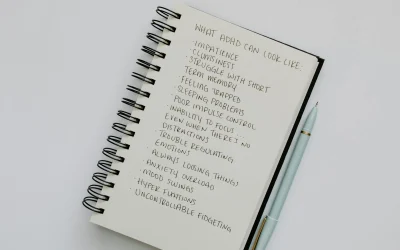 WHAT ADHD CAN LOOK LIKE
· IMPATIENCE
· CLUMSINESS
· STRUGGLE WITH SHORT
TERM MEMORY
· FEELING TRAPPED
· SLEEPING PROBLEMS
· POOR IMPULSE CONTROL
· INABILITY TO FOCUS
EVEN WHEN THERE'S NO
DISTRACTIONS
· TROUBLE REGULATING
EMOTIONS
· ALWAYS LOSING THINGS
· ANXIETY OVERLOAD
· MOOD SWINGS
· HYPER
UNCONTROLLABLE FIDGETING